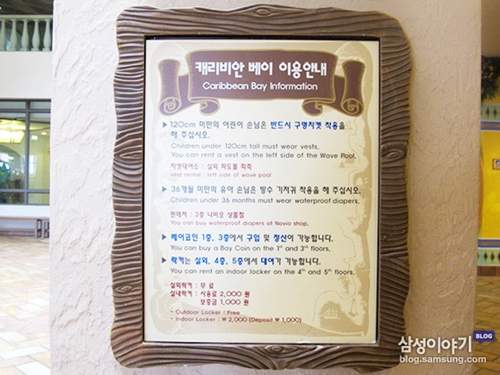 캐리비안 베이 이용안내
Caribbean Bay Information
▶ 120cm 미만의 어린이 손님은 반드시 구명자켓 착용을
해 주십시오.
Children under 120cm tall must wear vests.
You can rent a vest on the left side of the Wave Pool.
자켓대여소 : 실외 파도풀 좌측
vest rental : left side of wave pool
▶ 36개월 미만의 유아 손님은 방수 기저귀 착용을 해 주십시오.
Children under 36 months must wear waterproof diapers.
판매처 : 3층 나비오 상품점
You can buy waterproof diapers at Navio shop.
▶ 베이코인 1층, 3층에서 구입 및 정산이 가능합니다.
You can buy a Bay Coin on the 1st and 3rd floors.
▶ 락커는 실외, 4층, 5층에서 대여가 가능합니다.
You can rent an indoor locker on the 4th and 5th floors.
실외락커 : 무 료
실내락커 : 사용료 2,000 원
보증금 1,000 원
• Outdoor Locker : Free
• Indoor Locker : ₩ 2,000 (Deposit ₩ 1,000)
BLOG
삼성이야기
blog.samsung.com